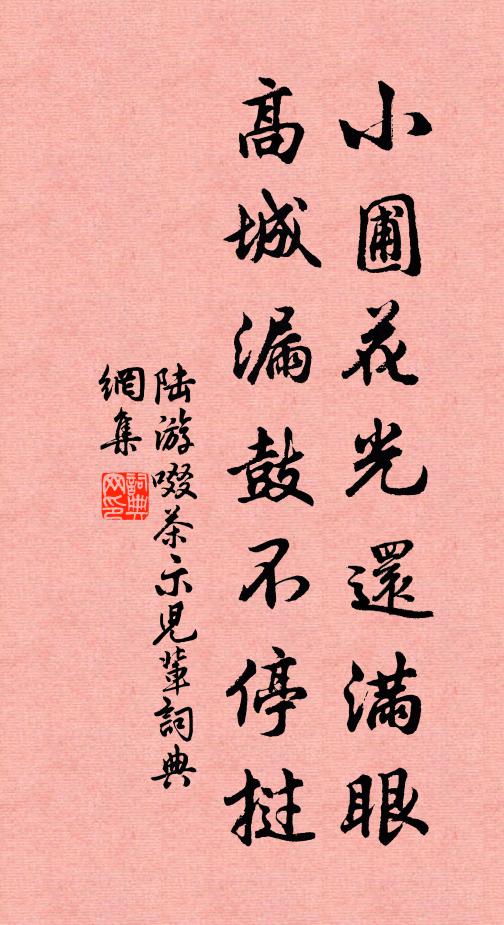 小圃花光還満眼
高城漏鼓不停撾
陆游啜茶示児輩詞典
網集
詞典网印